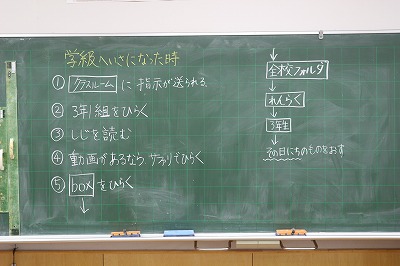 学級へいさになった時
① クラスルーム に指示が送られる
② 3年1組をひらく
③ しじを読む
④ 動画があるなら サファリでひらく
⑤ box をひらく
↓
↓
全校フォルダ
↓
れんらく
↓
3年生
↓
その日にちのものをおす